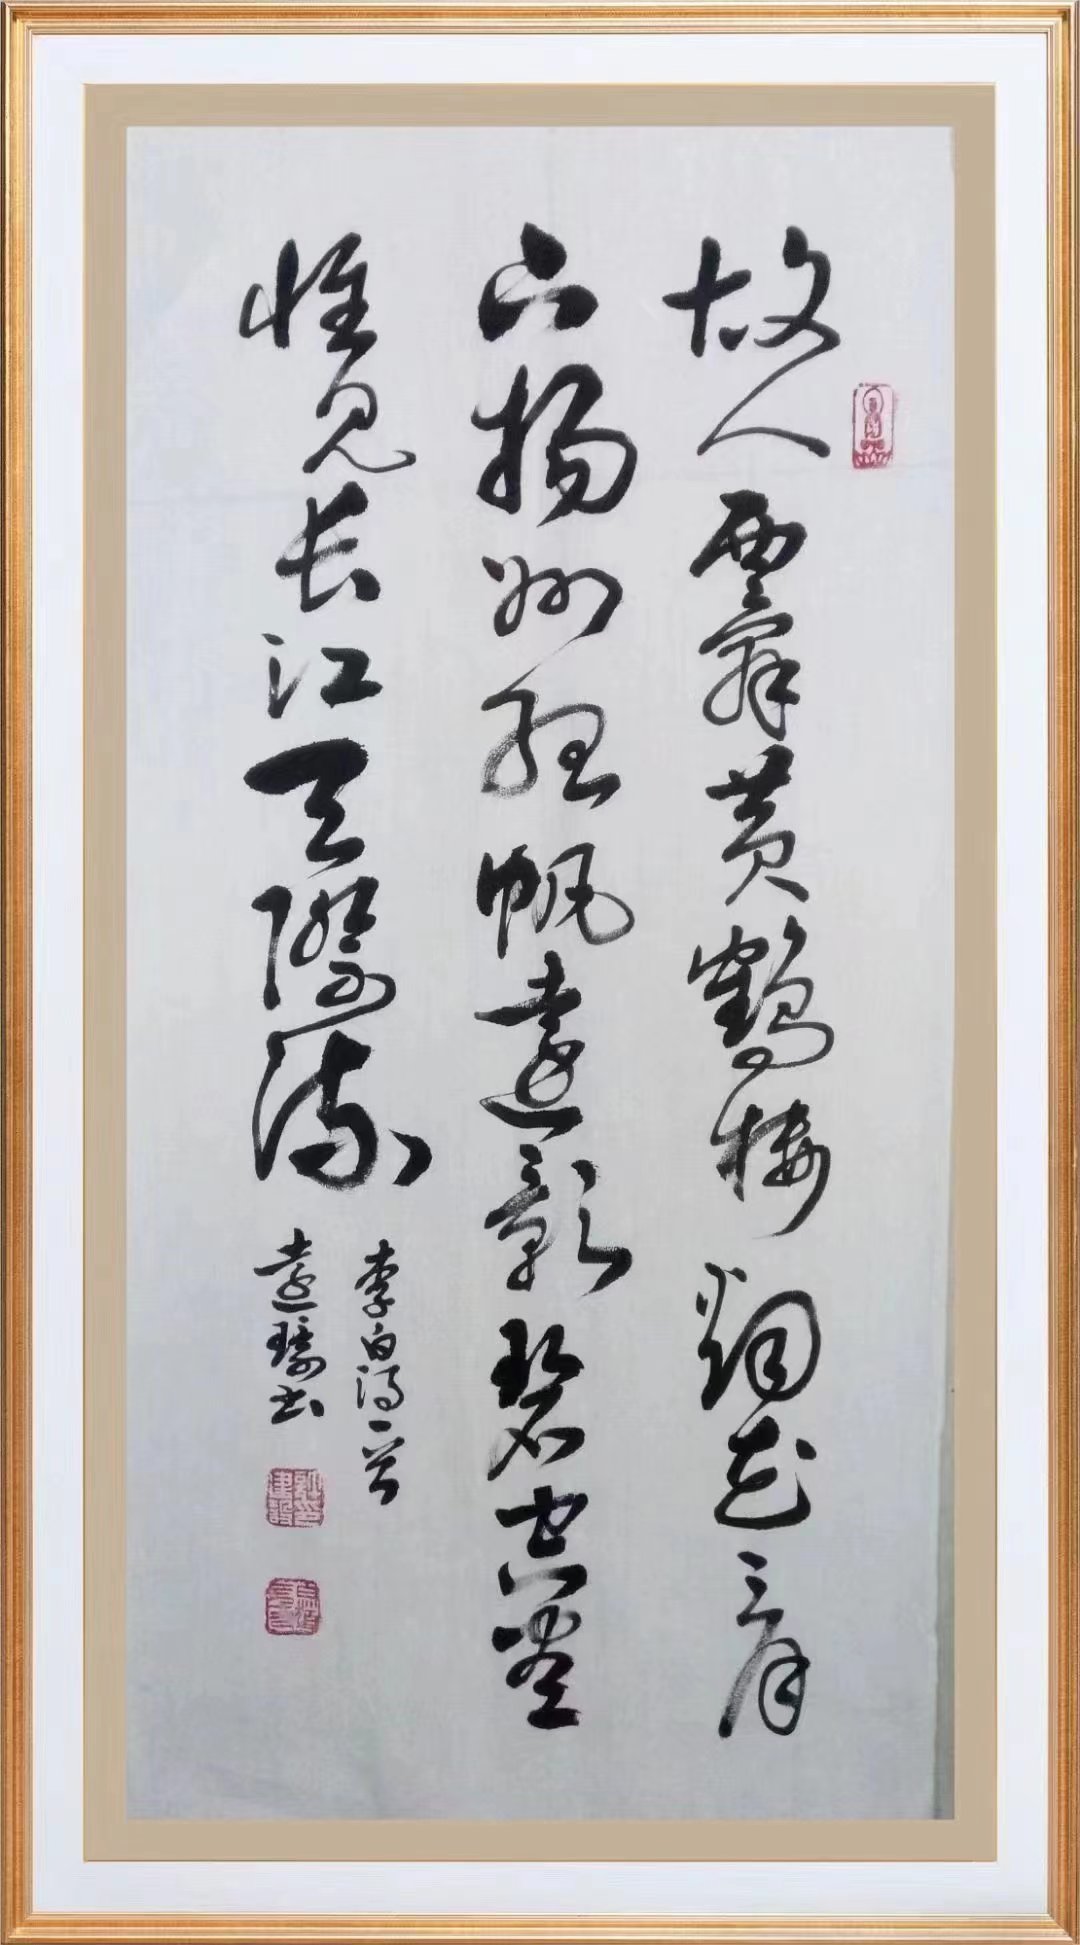 故人西辞黄鹤楼烟花三月
下扬州孤帆远影碧空尽
惟见长江天际流
李白诗一首